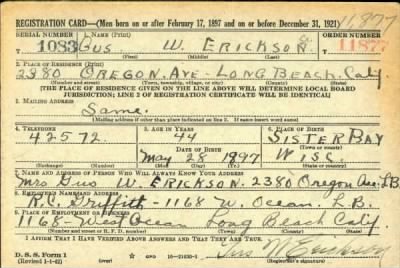 REGISTRATION CARD—(Men born on or after February 17, 1897 and on or before December 31, 1921)
SERIAL NUMBER 1. NAME (Print) ORDER NUMBER
1083 Gus W. Erickson 11877
(First) (Middle) (Last)
2. PLACE OF RESIDENCE (Print)
2380 OREGON. AVE - LONG BEACH. Caly
(Number and street) (Town, township, village, or city) (County) (State)
[THE PLACE OF RESIDENCE GIVEN ON THE LINE ABOVE WILL DETERMINE LOCAL BOARD
JURISDICTION; LINE 2 OF REGISTRATION CERTIFICATE WILL BE IDENTICAL]
3. MAILING ADDRESS
Same.
[Mailing address if other than place indicated on line 2. If same insert word same]
4. TELEPHONE 5. AGE IN YEARS 6. PLACE OF BIRTH
42572 44 SISTER BAY
DATE OF BIRTH (Town or county)
May 28 1897 Wisc
(Exchange) (Number) (Mo.) (Day) (Yr.) (State or country)
7. NAME AND ADDRESS OF PERSON WHO WILL ALWAYS KNOW YOUR ADDRESS
Mrs Gus W. ERICKSON. 2380 Oregon Ave. L.B.
8. EMPLOYER'S NAME AND ADDRESS
R.C. Griffith - 1168 W. Ocean. L.B.
9. PLACE OF EMPLOYMENT OR BUSINESS
1168 - West Ocean Long Beach Caly
(Number and street or R. F. D. number) (Town) (County) (State)
I AFFIRM THAT I HAVE VERIFIED ABOVE ANSWERS AND THAT THEY ARE TRUE.
D. S. S. Form 1
(Revised 1-1-42) (over) GPO 16—21630-1 Gus W Erickson